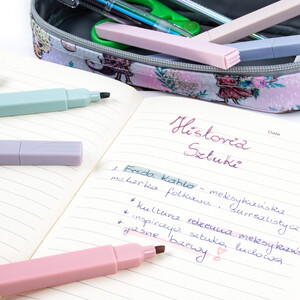 Historia
Sztuki
Date
1. Frida Kahlo - meksykańska
malarka folkowa i surrealistycz
* kultura rdzenna meksykańsk
* inspiracja sztuką ludową
* jasne barwy